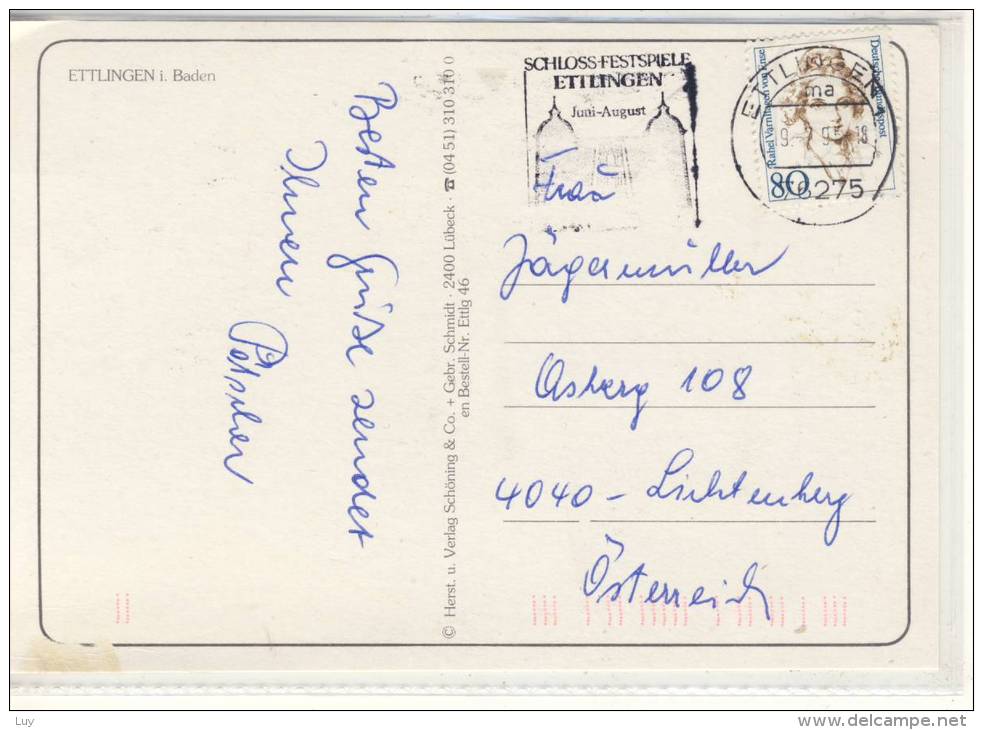 ETTLINGEN i. Baden
Besten Grüße sendet
Ihnen
© Herst. u. Verlag Schöning & Co. + Gebr. Schmidt · 2400 Lübeck · ☎ (04 51) 310 310 0
en Bestell-Nr. Ettlg 46
SCHLOSS-FESTSPIELE
ETTLINGEN
Juni-August
ETTLINGEN
ma
76275
Rahel Varnhagen von Ense
Deutsche Bundespost
80
Frau
Jägermüller
Asberg 108
4040 - Lichtenberg
Österreich
Luy
www.delcampe.net